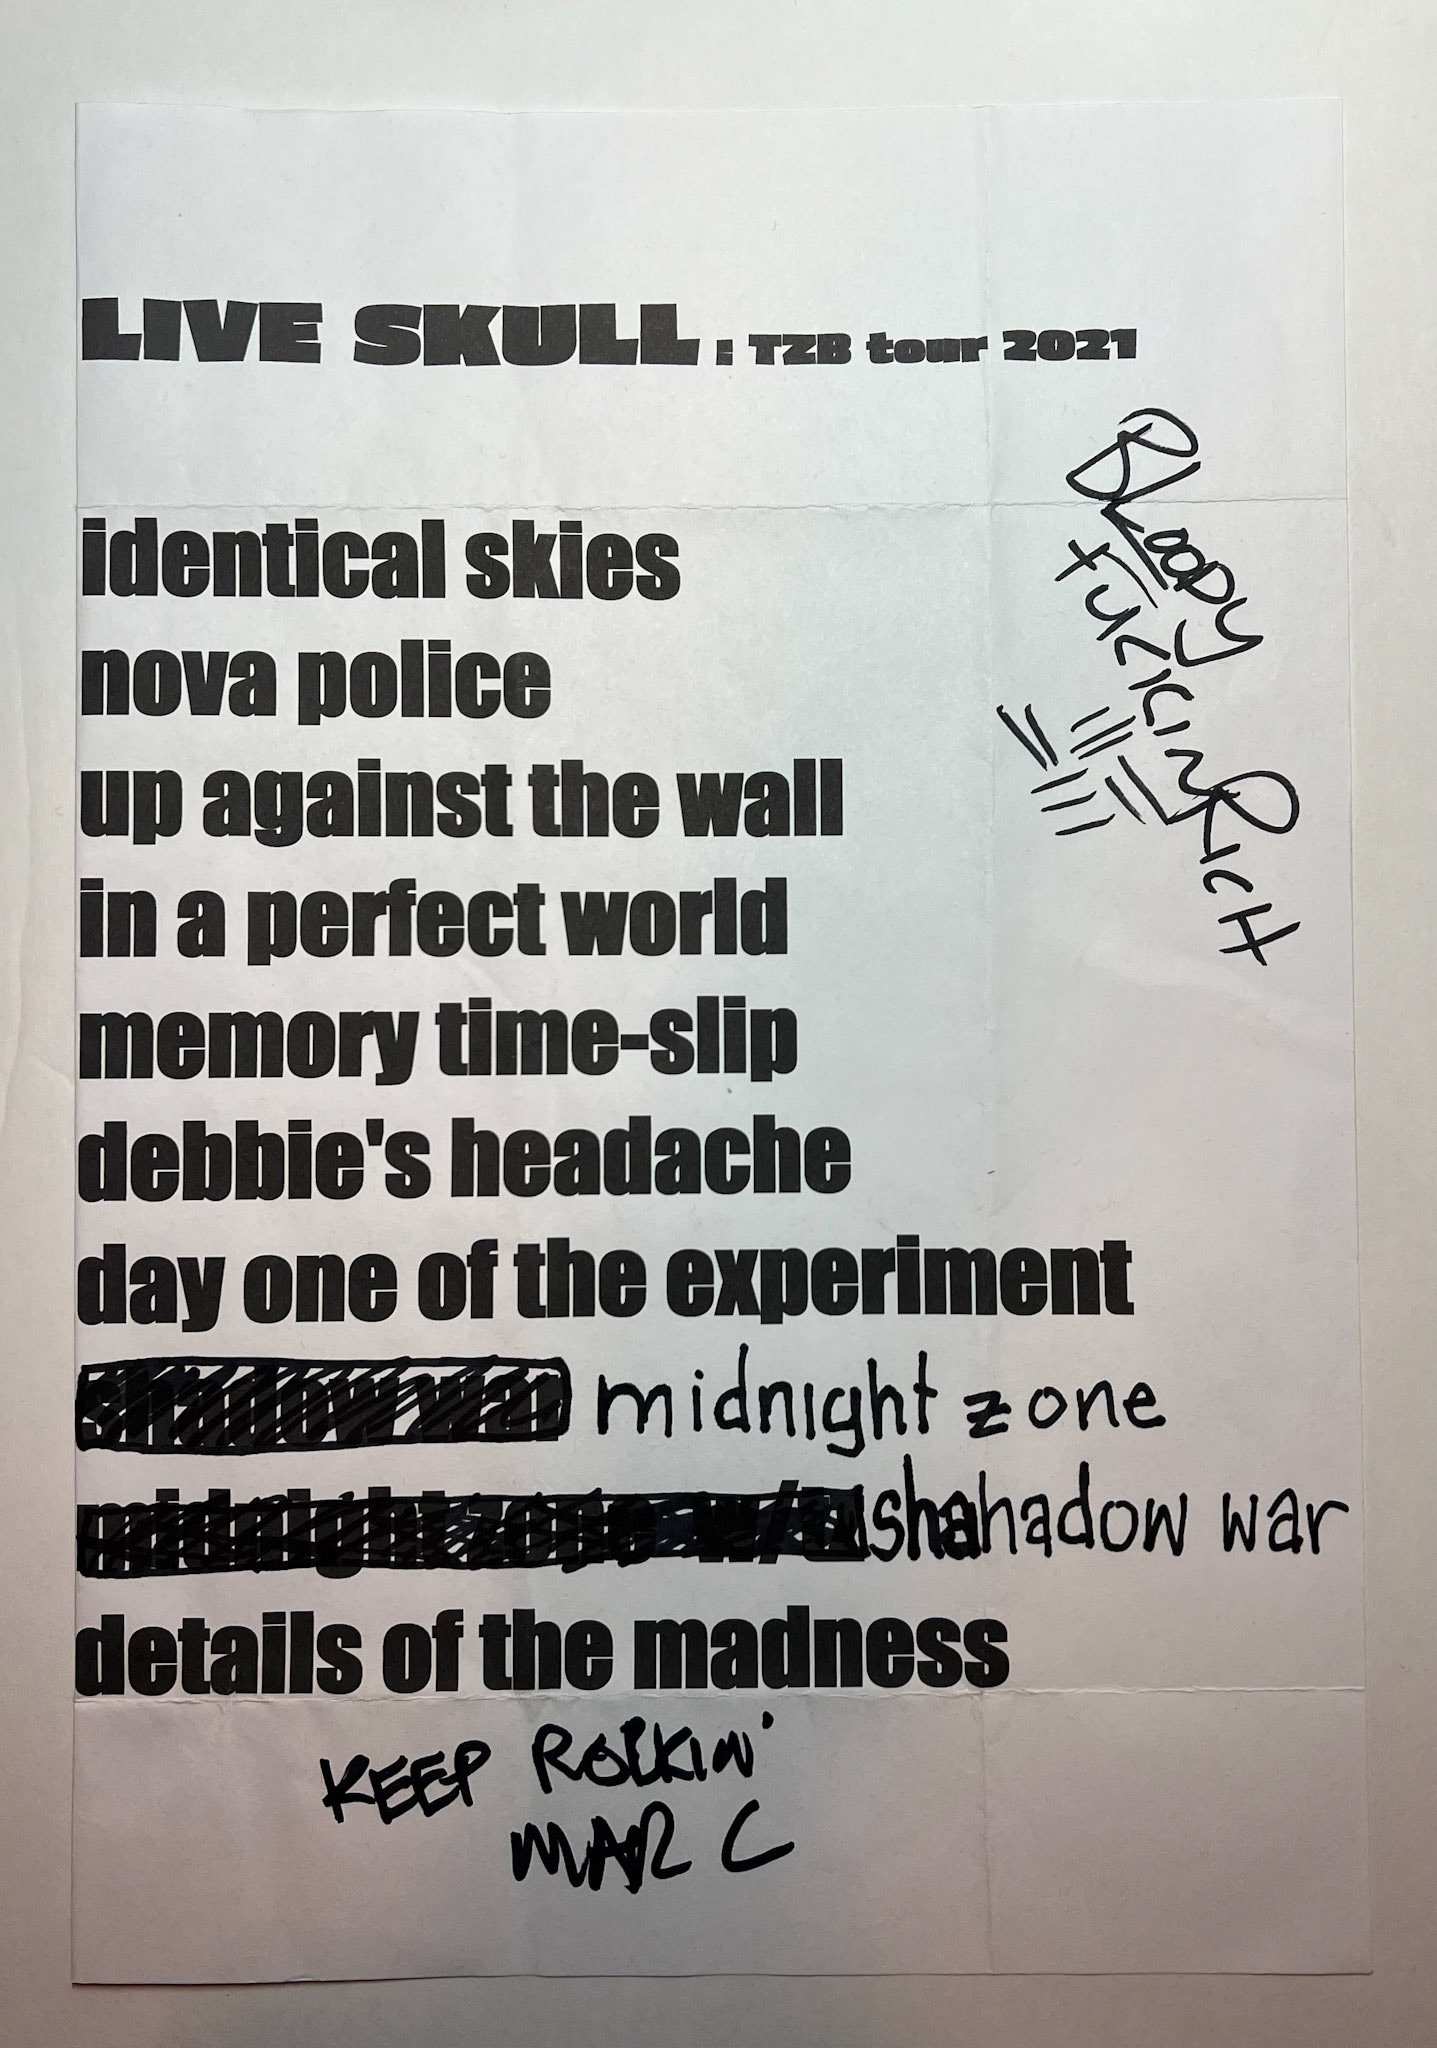 LIVE SKULL : TZB tour 2021
BLOODY
FUCKIN RICH
identical skies
nova police
up against the wall
in a perfect world
memory time-slip
debbie's headache
day one of the experiment
shadow war midnight zone
midnight zone w/ shahadow war
details of the madness
KEEP ROCKIN'
MARC